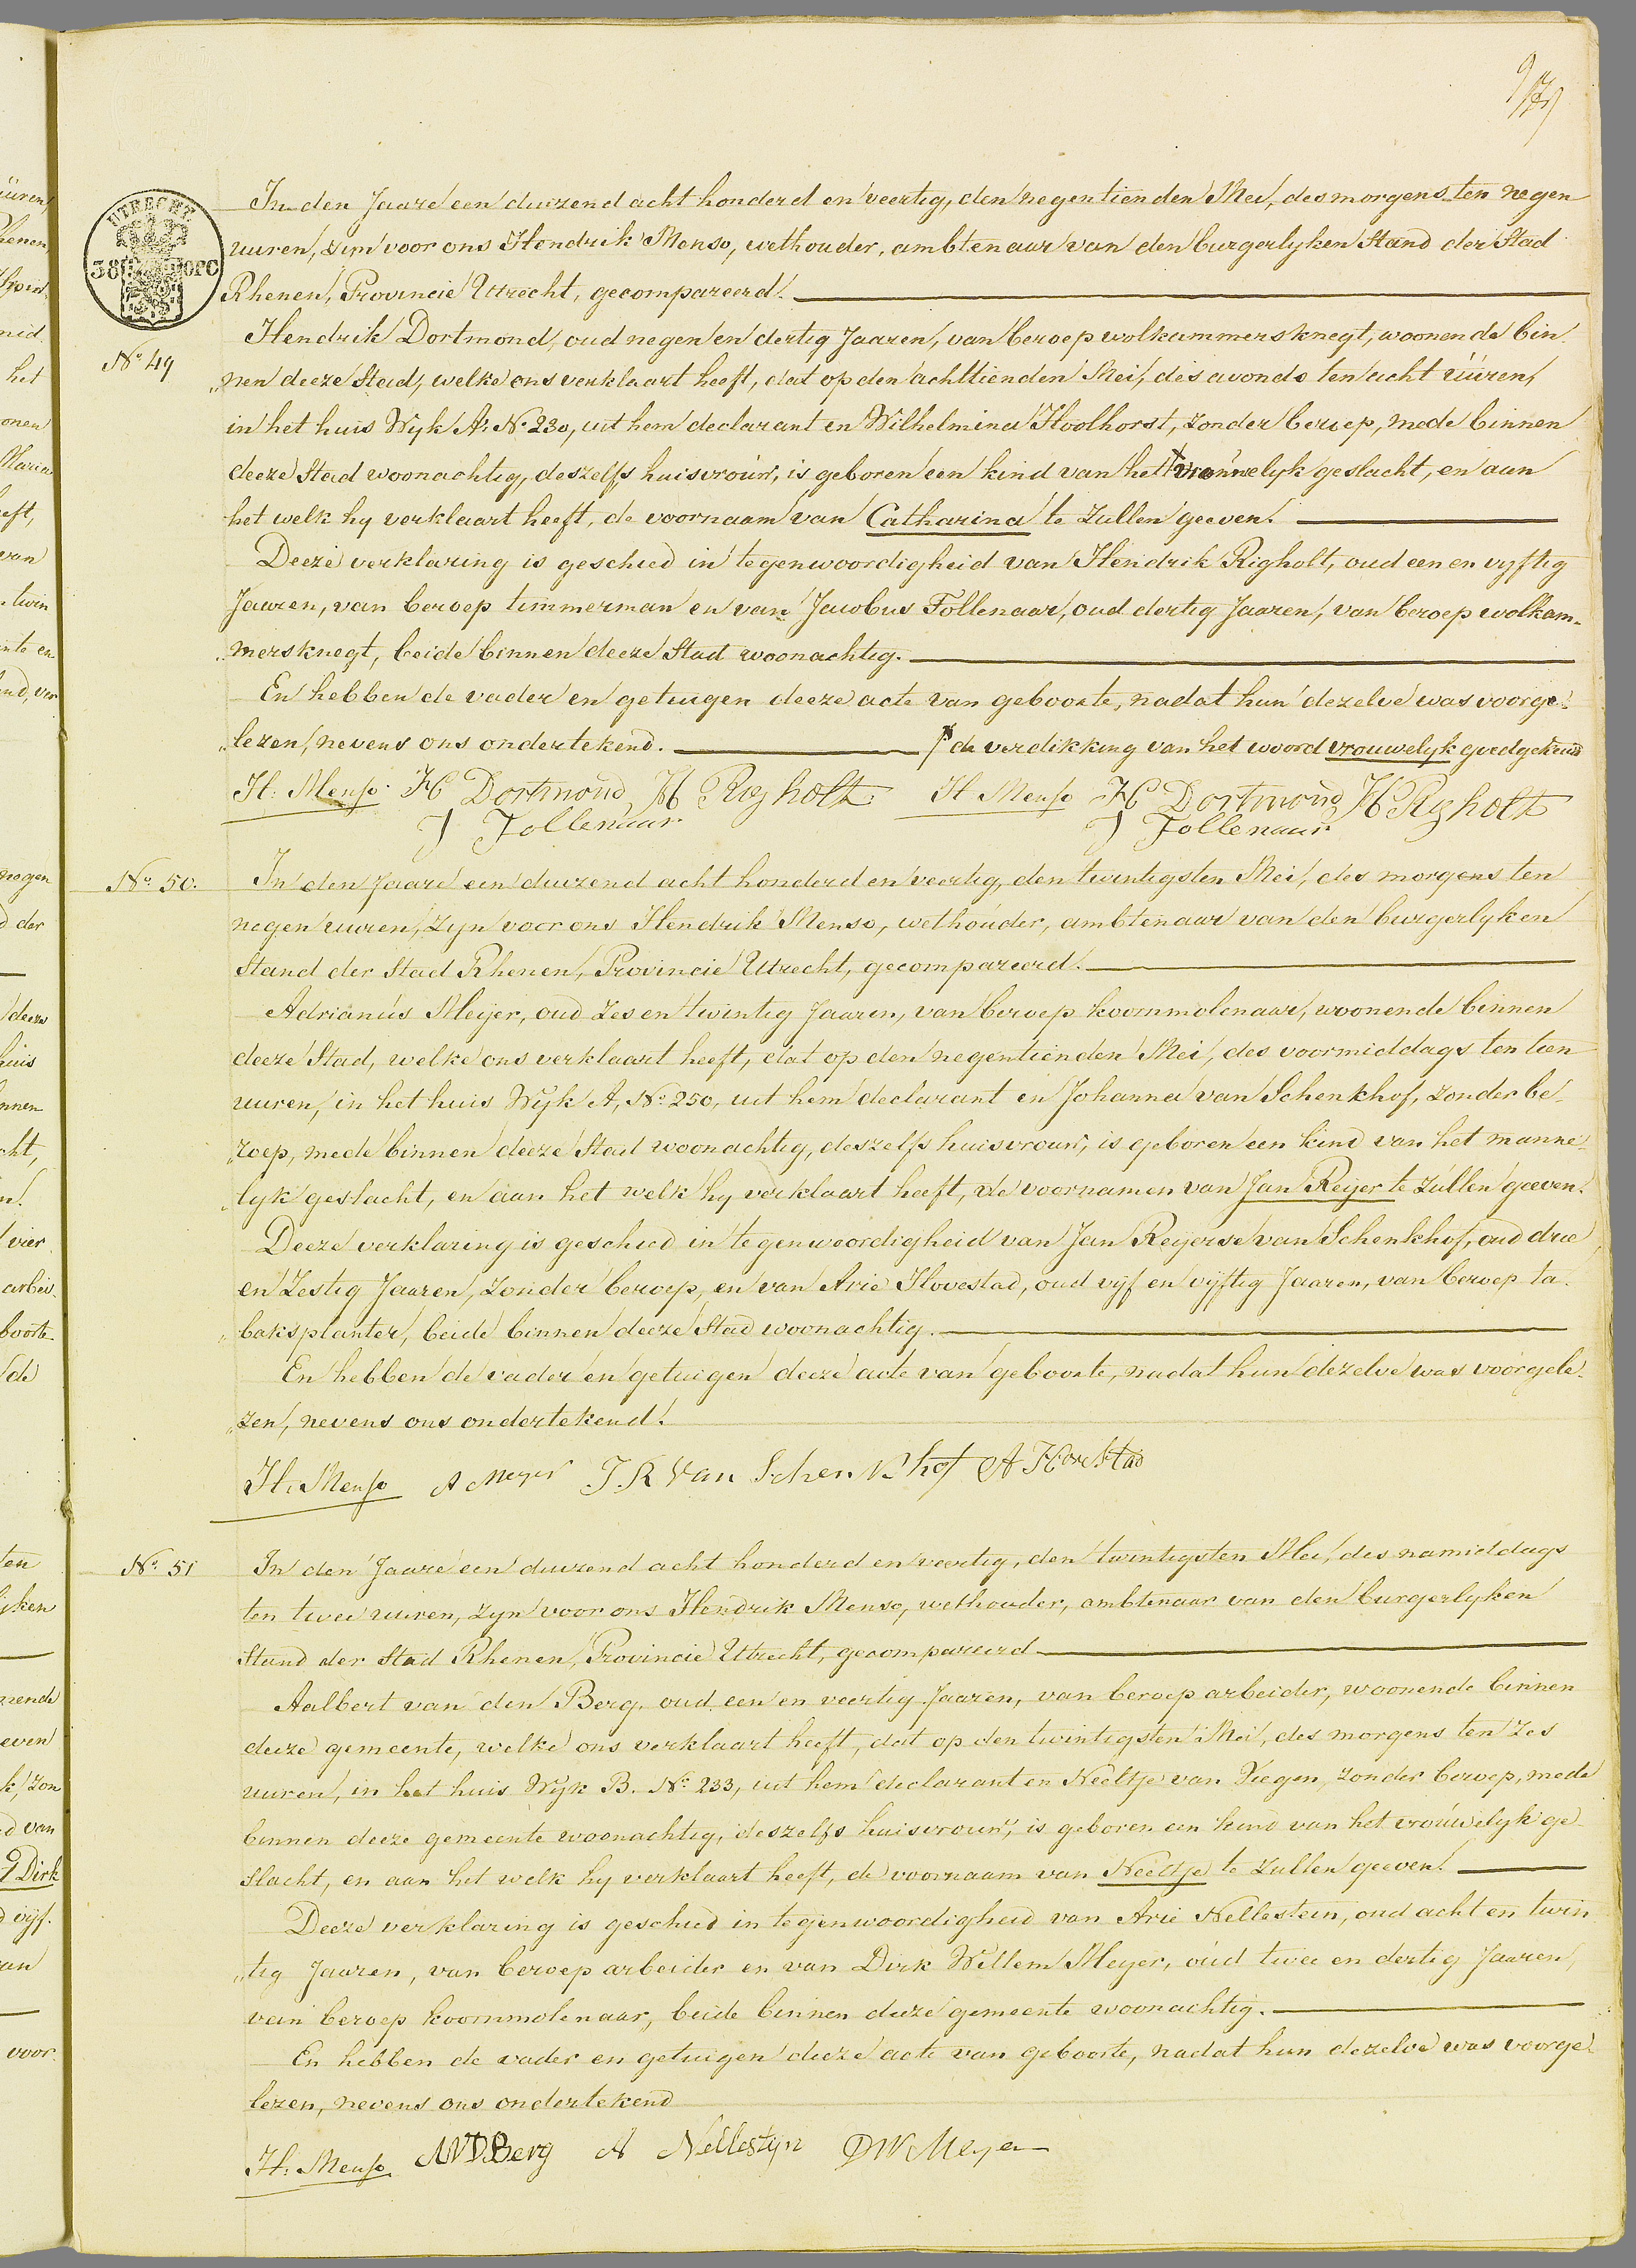 UTRECHT.
38 OPC
In den Jaare een duizend acht honderd en veertig, den negentienden Mei, des morgens ten negen
uuren, zijn voor ons Hendrik Menso, wethouder, ambtenaar van den burgerlyken Stand der Stad
Rhenen, Provincie Utrecht, gecompareerd.
N° 49
Hendrik Dortmond, oud negen en dertig Jaaren, van beroep wolkammersknegt, woonende bin
„nen deeze Stad, welke ons verklaart heeft, dat op den achttienden Mei, des avonds ten acht uuren,
in het huis Wyk A. N° 230, uit hem declarant en Wilhelmina Hoolhorst, zonder beroep, mede binnen
deeze Stad woonachtig, deszelfs huisvrouw, is geboren een kind van het vrouwelyk geslacht, en aan
het welk hy verklaart heeft, de voornaam van Catharina te Zullen geeven.
Deeze verklaring is geschied in tegenwoordigheid van Hendrik Righolt, oud een en vyftig
Jaaren, van beroep timmerman en van Jacobus Tollenaar, oud dertig Jaaren, van beroep wolkam-
„mersknegt, beide binnen deeze Stad woonachtig.
En hebben de vader en getuigen deeze acte van geboorte, nadat hun dezelve was voorge-
„lezen, nevens ons ondertekend. de verdikking van het woord vrouwelyk goedgekeurd
H: Menso H Dortmond H Righolt H Menso H Dortmond H Righolt
J Tollenaar J Tollenaar
N° 50.
In den Jaare een duizend acht honderd en veertig, den twintigsten Mei, des morgens ten
negen uuren, zyn voor ons Hendrik Menso, wethouder, ambtenaar van den burgerlyken
Stand der Stad Rhenen, Provincie Utrecht, gecompareerd.
Adrianus Meijer, oud Zes en twintig Jaaren, van beroep koornmolenaar, woonende binnen
deeze Stad, welke ons verklaart heeft, dat op den negentienden Mei, des voormiddags ten tien
uuren, in het huis Wyk A, N° 250, uit hem declarant en Johanna van Schenkhof, zonder be-
„roep, mede binnen deeze Stad woonachtig, deszelfs huisvrouw, is geboren een kind van het manne-
„lyk geslacht, en aan het welk hy verklaart heeft, de voornamen van Jan Reijer te Zullen geeven.
Deeze verklaring is geschied in tegenwoordigheid van Jan Reijerse van Schenkhof, oud drie
en Zestig Jaaren, zonder beroep, en van Arie Hovestad, oud vijf en vijftig Jaaren, van beroep ta-
„baksplanter, beide binnen deeze Stad woonachtig.
En hebben de vader en getuigen deeze acte van geboorte, nadat hun dezelve was voorgele-
„zen, nevens ons ondertekend.
H: Menso A Meyer J. R Van Schenkhof A Hovestad
N° 51
In den Jaare een duizend acht honderd en veertig, den twintigsten Mei, des namiddags
ten twee uuren, zyn voor ons Hendrik Menso, wethouder, ambtenaar van den burgerlyken
Stand der Stad Rhenen, Provincie Utrecht, gecompareerd
Aalbert van den Berg, oud een en veertig Jaaren, van beroep arbeider, woonende binnen
deeze gemeente, welke ons verklaart heeft, dat op den twintigsten Mei, des morgens ten Zes
uuren, in het huis Wyk B. N° 233, uit hem declarant en Neeltje van Viegen, zonder beroep, mede
binnen deeze gemeente woonachtig, deszelfs huisvrouw, is geboren een kind van het vrouwelyk ge
slacht, en aan het welk hy verklaart heeft, de voornaam van Neeltje te Zullen geeven.
Deeze verklaring is geschied in tegenwoordigheid van Arie Nellestein, oud acht en twin
„tig Jaaren, van beroep arbeider en van Dirk Willem Meyer, oud twee en dertig Jaaren,
van beroep koornmolenaar, beide binnen deeze gemeente woonachtig.
En hebben de vader en getuigen deeze acte van geboorte, nadat hun dezelve was voorge-
lezen, nevens ons ondertekend
H: Menso AVDBerg A Nellestijn DW Meyer